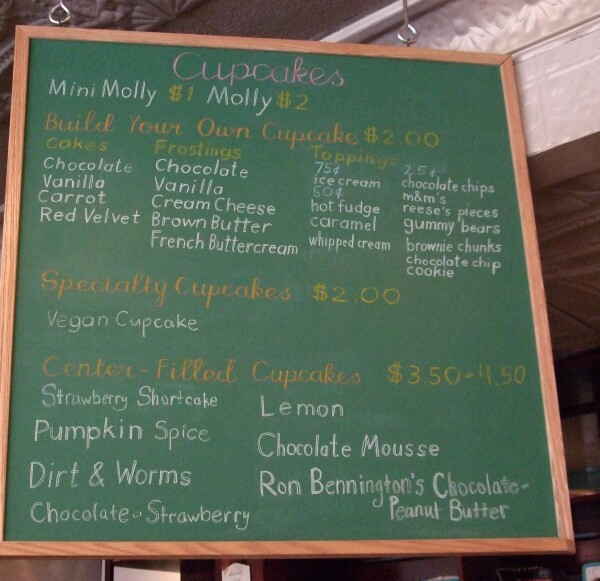 Cupcakes
Mini Molly $1 Molly $2
Build Your Own Cupcake $2.00
Cakes Frostings Toppings
Chocolate
Vanilla
Carrot
Red Velvet
Chocolate
Vanilla
Cream Cheese
Brown Butter
French Buttercream
75¢
ice cream
50¢
hot fudge
caramel
whipped cream
25¢
chocolate chips
m&m's
reese's pieces
gummy bears
brownie chunks
chocolate chip
cookie
Specialty Cupcakes $2.00
Vegan Cupcake
Center-Filled Cupcakes $3.50-4.50
Strawberry Shortcake
Pumpkin Spice
Dirt & Worms
Chocolate-Strawberry
Lemon
Chocolate Mousse
Ron Bennington's Chocolate-
Peanut Butter